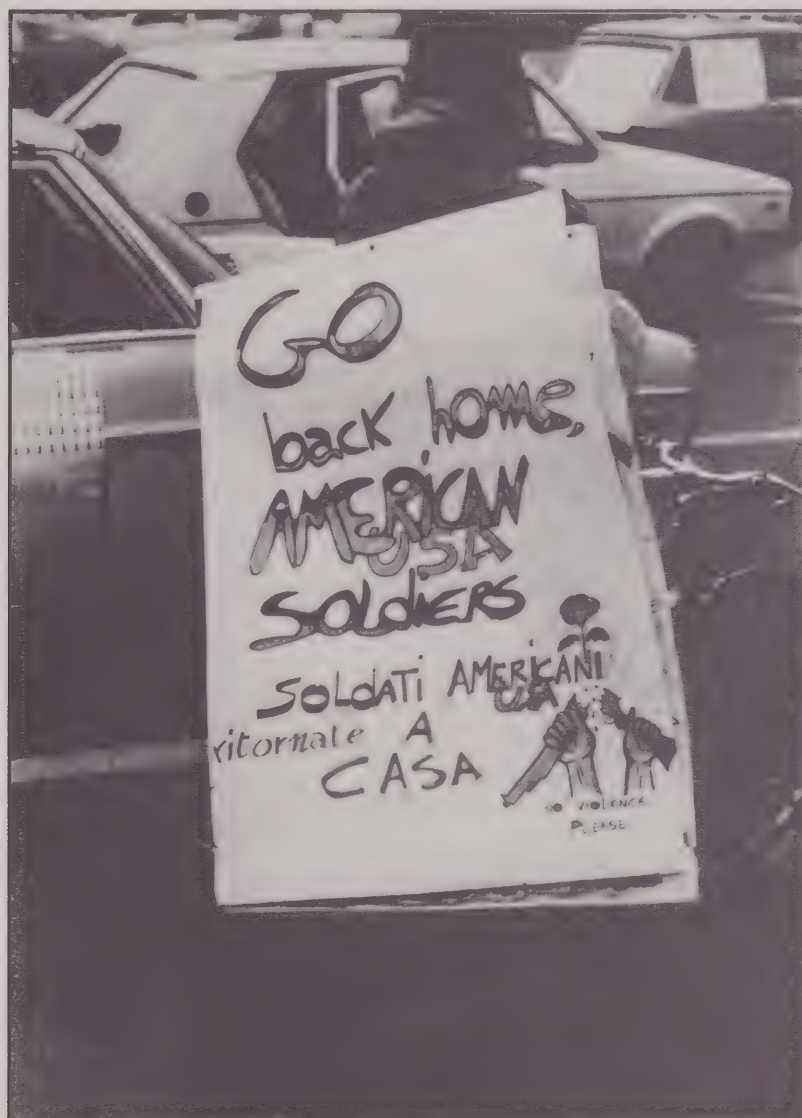 GO
back home,
AMERICAN
USA
SOLDIERS
SOLDATI AMERICANI
USA
ritornate A
CASA
NO VIOLENCE
PLEASE